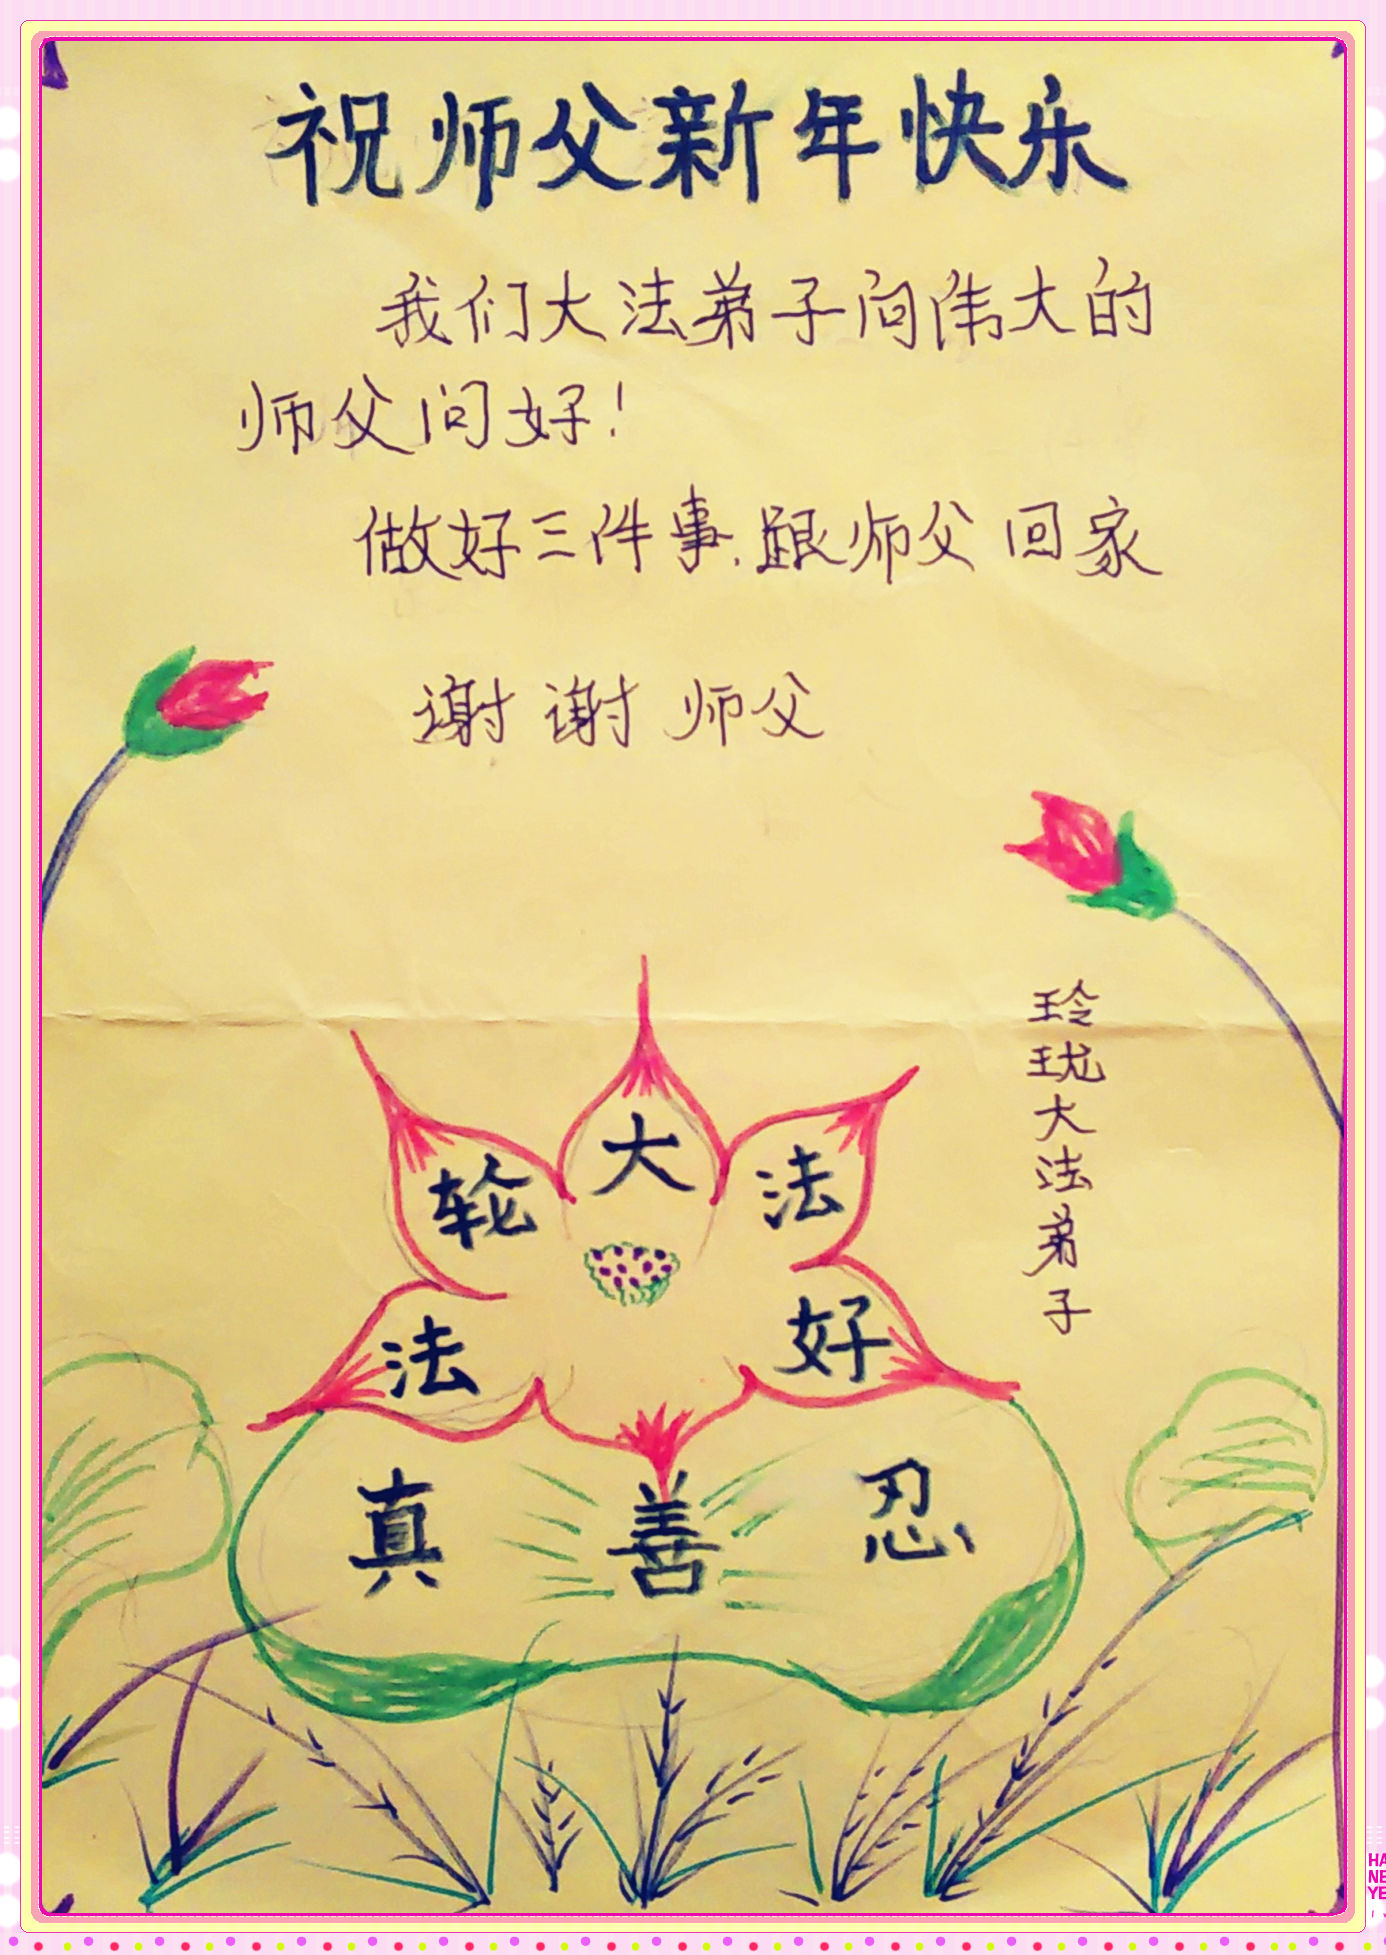 祝师父新年快乐
我们大法弟子向伟大的
师父问好！
做好三件事.跟师父回家
谢谢师父
玲珑大法弟子
法轮大法好
真善忍
HA
NE
YE